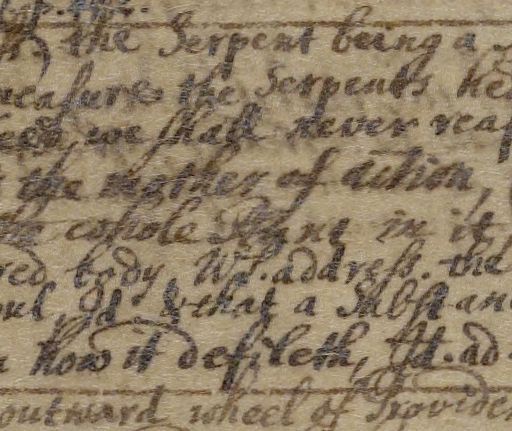 the Serpent being a
measure the Serpents he
we shall never reap
the mother of action,
the whole Signe in it
red body Wd. address. the
oul, Id. & that a Substan
how it defileth, Id. ad
outward wheel of Provide